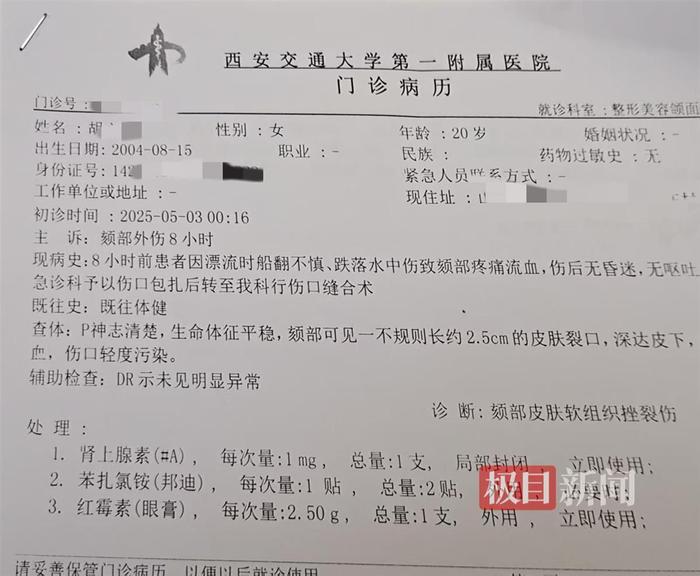 西安交通大学第一附属医院
门诊病历
门诊号：
就诊科室：整形美容颌面
姓名：胡
性别：女
年龄：20岁
婚姻状况：-
出生日期：2004-08-15
职业：-
民族：
药物过敏史：无
身份证号：142
紧急人员联系方式：-
工作单位或地址：-
现住址：山
初诊时间：2025-05-03 00:16
主 诉：颏部外伤8小时
现病史：8小时前患者因漂流时船翻不慎、跌落水中伤致颏部疼痛流血，伤后无昏迷，无呕吐
急诊科予以伤口包扎后转至我科行伤口缝合术
既往史：既往体健
查体：P神志清楚，生命体征平稳，颏部可见一不规则长约2.5cm的皮肤裂口，深达皮下，
血，伤口轻度污染。
辅助检查：DR示未见明显异常
诊 断：颏部皮肤软组织挫裂伤
处 理：
1. 肾上腺素(#A)， 每次量:1mg， 总量:1支， 局部封闭， 立即使用；
2. 苯扎氯铵(邦迪)， 每次量:1 贴， 总量:2贴，
3. 红霉素(眼膏)， 每次量:2.50g， 总量:1支， 外用 ， 立即使用；
极目新闻
请妥善保管门诊病历，以便以后就诊使用